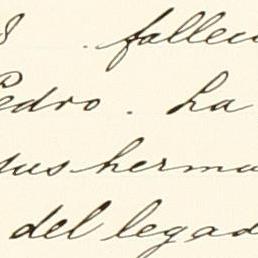 8 . fallec
Pedro . ha
sus herma
del legad